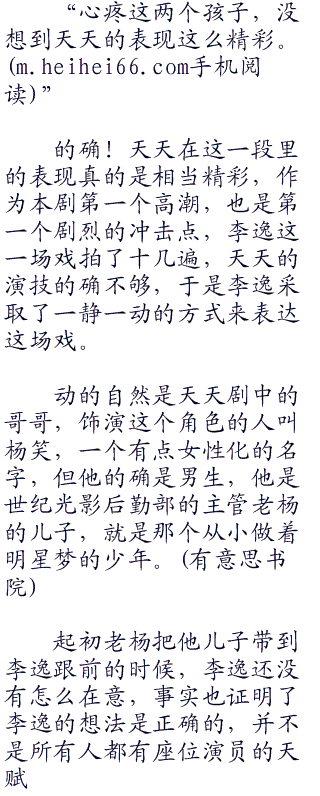 “心疼这两个孩子，没
想到天天的表现这么精彩。
(m.heihei66.com手机阅
读)”
的确！天天在这一段里
的表现真的是相当精彩，作
为本剧第一个高潮，也是第
一个剧烈的冲击点，李逸这
一场戏拍了十几遍，天天的
演技的确不够，于是李逸采
取了一静一动的方式来表达
这场戏。
动的自然是天天剧中的
哥哥，饰演这个角色的人叫
杨笑，一个有点女性化的名
字，但他的确是男生，他是
世纪光影后勤部的主管老杨
的儿子，就是那个从小做着
明星梦的少年。(有意思书
院)
起初老杨把他儿子带到
李逸跟前的时候，李逸还没
有怎么在意，事实也证明了
李逸的想法是正确的，并不
是所有人都有座位演员的天
赋